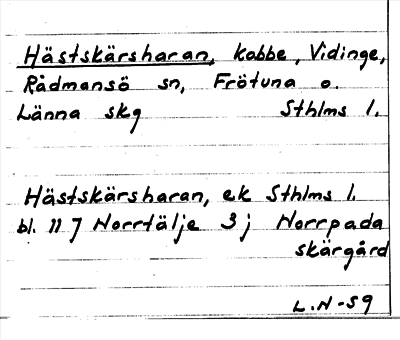 Hästskärsharan, kobbe, Vidinge,
Rådmansö sn, Frötuna o.
Länna skg Sthlms l.
Hästskärsharan, ek Sthlms l.
bl. 11 J Norrtälje 3 j Norrpada
skärgård
L.N-59